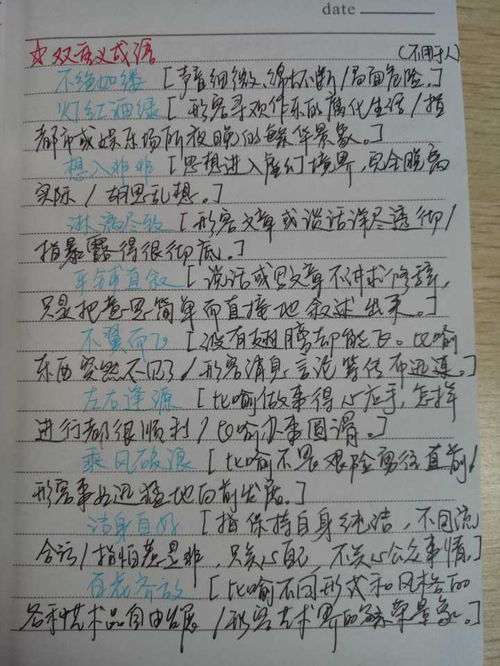 date
☆双面义成语 (不用于人)
不绝如缕 [声音细微、绵绵不断/局面危险。]
灯红酒绿 [形容寻欢作乐的腐化生活/指
都市或娱乐场所夜晚的繁华景象。]
想入非非 [思想进入虚幻境界,完全脱离
实际/胡思乱想。]
淋漓尽致 [形容文章或谈话详尽透彻/
指暴露得很彻底。]
平铺直叙 [说话或写文章不讲求修辞,
只是把意思简单而直接地叙述出来。]
不翼而飞 [没有翅膀却能飞。比喻
东西突然不见了/形容消息、言论等传布迅速。]
左右逢源 [比喻做事得心应手,怎样
进行都很顺利/比喻办事圆滑。]
乘风破浪 [比喻不畏艰险勇往直前/
形容事业迅猛地向前发展。]
洁身自好 [指保持自身纯洁,不同流
合污/指怕惹是非,只关心自己,不关心公众事情。]
百花齐放 [比喻不同形式和风格的
各种艺术品自由发展/形容艺术界的繁荣景象。]